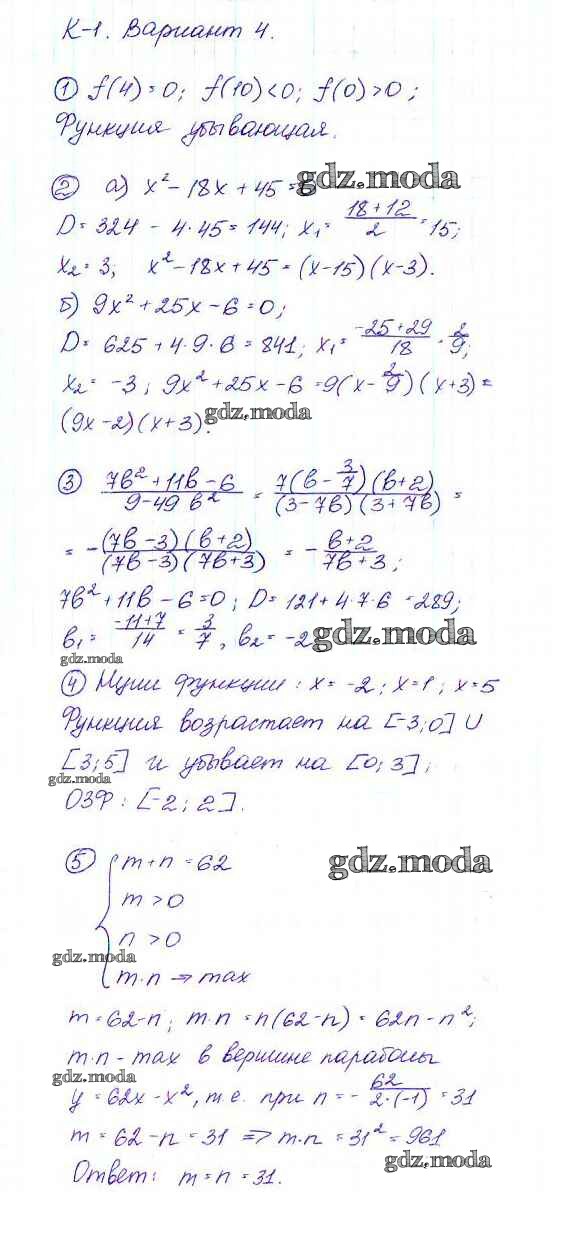 К-1. Вариант 4.
① f(4)=0; f(10)<0; f(0)>0;
Функция убывающая.
② а) x² - 18x + 45 =
gdz.moda
D = 324 - 4·45 = 144; x₁ = (18+12)/2 = 15;
x₂ = 3; x² - 18x + 45 = (x-15)(x-3).
б) 9x² + 25x - 6 = 0;
D = 625 + 4·9·6 = 841; x₁ = (-25+29)/18 = 2/9;
x₂ = -3; 9x² + 25x - 6 = 9(x - 2/9)(x+3) =
(9x-2)(x+3).
gdz.moda
③ (7в² + 11в - 6)/(9 - 49в²) = 7(в - 3/7)(в+2)/((3-7в)(3+7в)) =
= -(7в-3)(в+2)/((7в-3)(7в+3)) = -(в+2)/(7в+3);
7в² + 11в - 6 = 0; D = 121 + 4·7·6 = 289;
в₁ = (-11+7)/14 = 3/7, в₂ = -2
gdz.moda
gdz.moda
④ Нули функции: x = -2; x = 1; x = 5
Функция возрастает на [-3;0] U
[3;5] и убывает на [0;3];
gdz.moda
ОЗФ: [-2; 2].
⑤ { m+n = 62
gdz.moda
m > 0
n > 0
gdz.moda
m·n → max
m = 62-n; m·n = n(62-n) = 62n - n²;
m·n - max в вершине параболы
gdz.moda
y = 62x - x², т.е. при n = - 62/(2·(-1)) = 31
m = 62 - n = 31 => m·n = 31² = 961
gdz.moda
Ответ: m = n = 31.